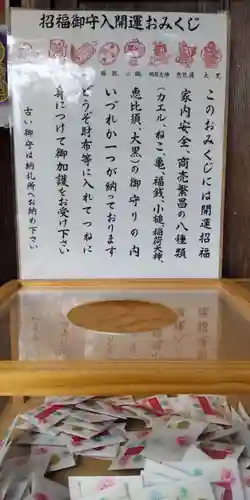 招福御守入開運おみくじ
このおみくじには開運招福
家内安全、商売繁昌の八種類
(カエル、ねこ、亀、福銭、小槌、稲荷大神、
恵比須、大黒)の御守りの内
いづれか一つが納っております
どうぞ財布等に入れてつねに
身につけて御加護をお受け下さい
古い御守は納札所へお納め下さい